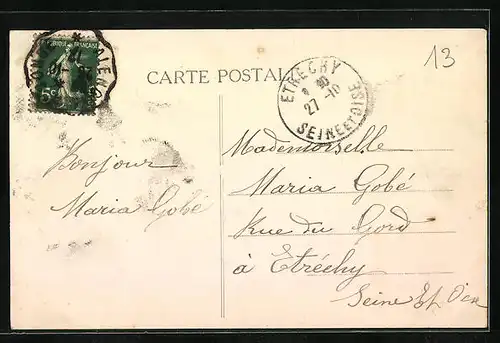 RÉPUBLIQUE FRANÇAISE
5c
CARTE POSTALE
ETRECHY
27 -10
SEINE ET OISE
13
Bonjour
Maria Gobé
Mademoiselle
Maria Gobé
Rue du Gord
à Etréchy
Seine Et Oise